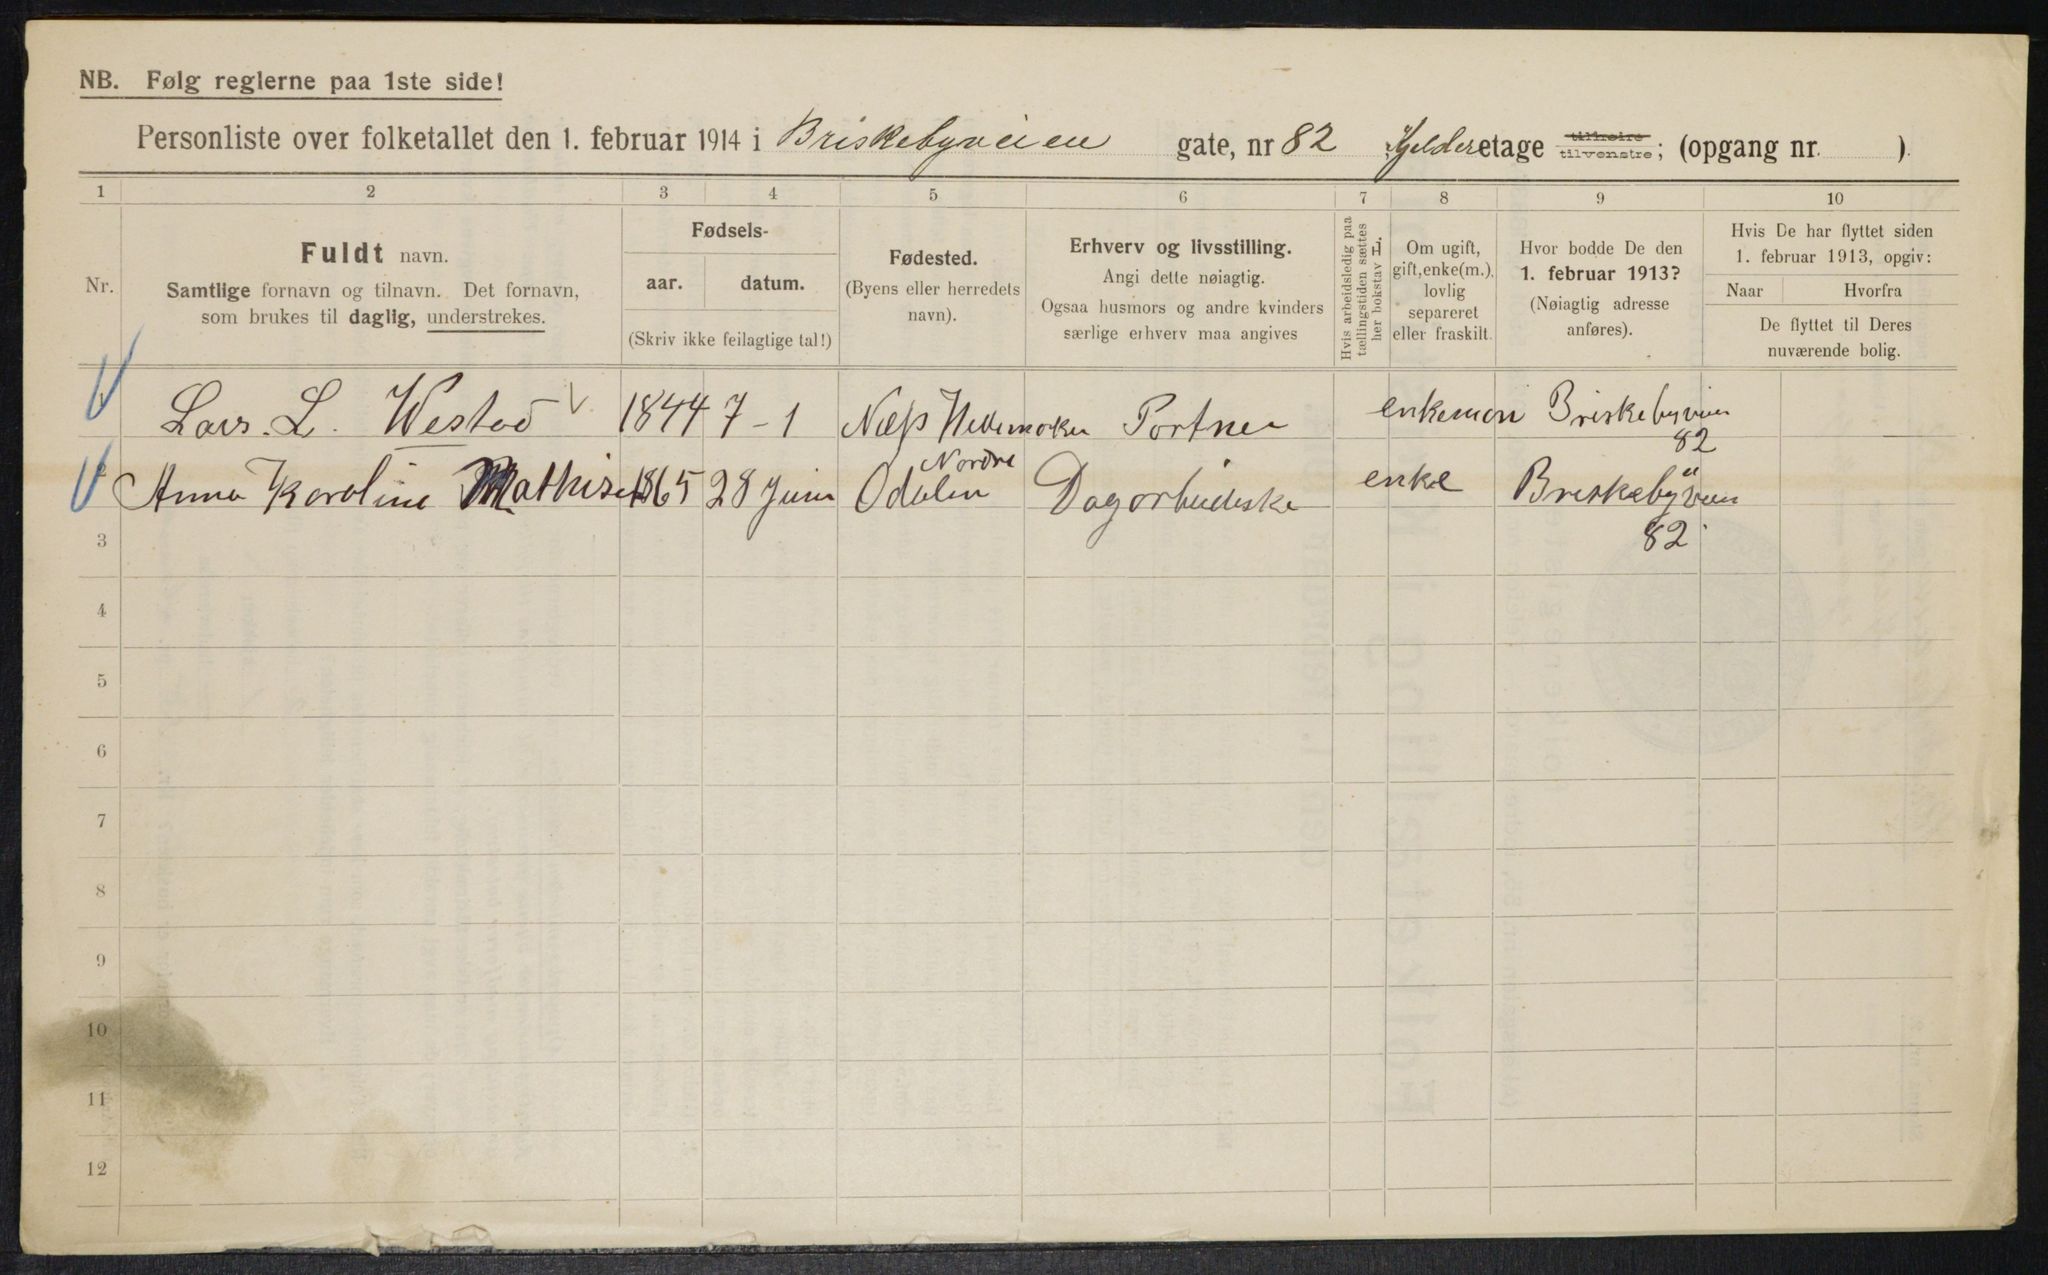 NB. Følg reglerne paa 1ste side!
Personliste over folketallet den 1. februar 1914 i Briskebyveien gate, nr 82 Kjelderetage tilhøire tilvenstre; (opgang nr. ).
1 2 3 4 5 6 7 8 9 10
Nr.
Fuldt navn.
Samtlige fornavn og tilnavn. Det fornavn,
som brukes til daglig, understrekes.
Fødsels-
aar. datum.
(Skriv ikke feilagtige tal!)
Fødested.
(Byens eller herredets
navn).
Erhverv og livsstilling.
Angi dette nøiagtig.
Ogsaa husmors og andre kvinders
særlige erhverv maa angives
Hvis arbeidsledig paa
tællingstiden sættes
her bokstav L.
Om ugift,
gift, enke(m.),
lovlig
separeret
eller fraskilt.
Hvor bodde De den
1. februar 1913?
(Nøiagtig adresse
anføres).
Hvis De har flyttet siden
1. februar 1913, opgiv:
Naar Hvorfra
De flyttet til Deres
nuværende bolig.
Lars. L. Westad 1844 7-1 Næs Hedemarken Portner enkeman Briskebyveien
82
Anna Karoline Mathisen 1865 28 Juni Nordre Odalen Dagarbeiderske enke Briskebyveien
82
3
4
5
6
7
8
9
10
11
12